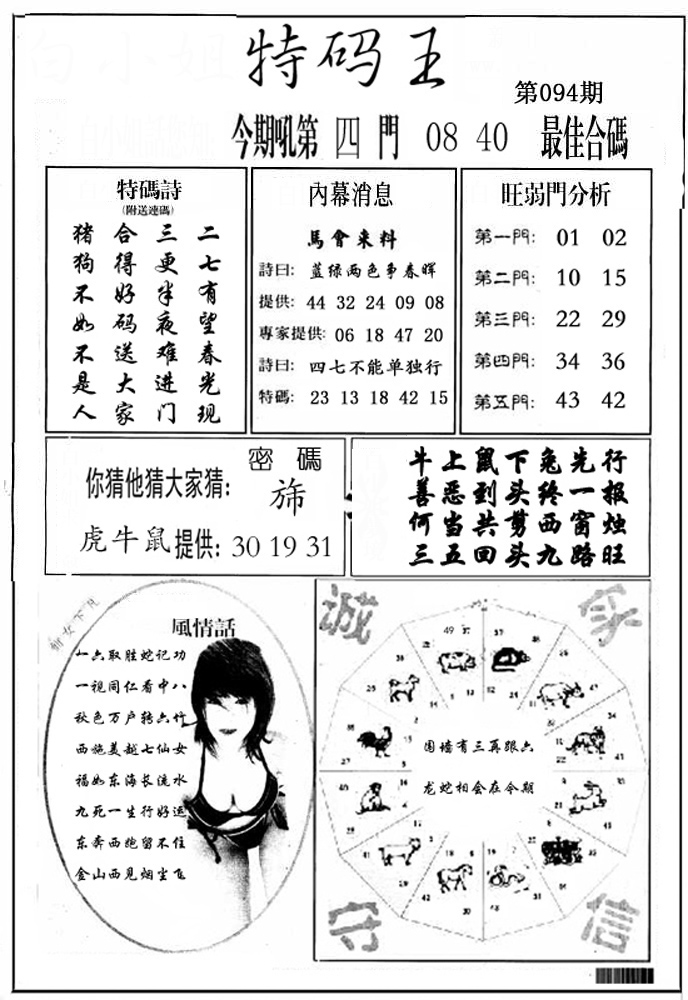 特码王
第094期
今期吼第 四 門 08 40 最佳合碼
特碼詩
(附送連碼)
猪 合 三 二
狗 得 更 七
不 好 半 有
如 码 夜 望
不 送 难 春
是 大 进 光
人 家 门 现
內幕消息
馬會来料
詩曰: 蓝绿两色争春晖
提供: 44 32 24 09 08
專家提供: 06 18 47 20
詩曰: 四七不能单独行
特碼: 23 13 18 42 15
旺弱門分析
第一門: 01 02
第二門: 10 15
第三門: 22 29
第四門: 34 36
第五門: 43 42
密 碼
你猜他猜大家猜: 
虎牛鼠提供: 30 19 31
牛上鼠下兔先行
善恶到头终一报
何当共剪西窗烛
三五回头九路旺
風情話
一六取胜蛇记功
一视同仁看中八
秋色万户转六竹
西施美越七仙女
福如东海长流水
九死一生行好运
东奔西跑留不住
金山西见烟尘飞
诚
家
围墙有三再跟六
龙蛇相会在今期
守
信